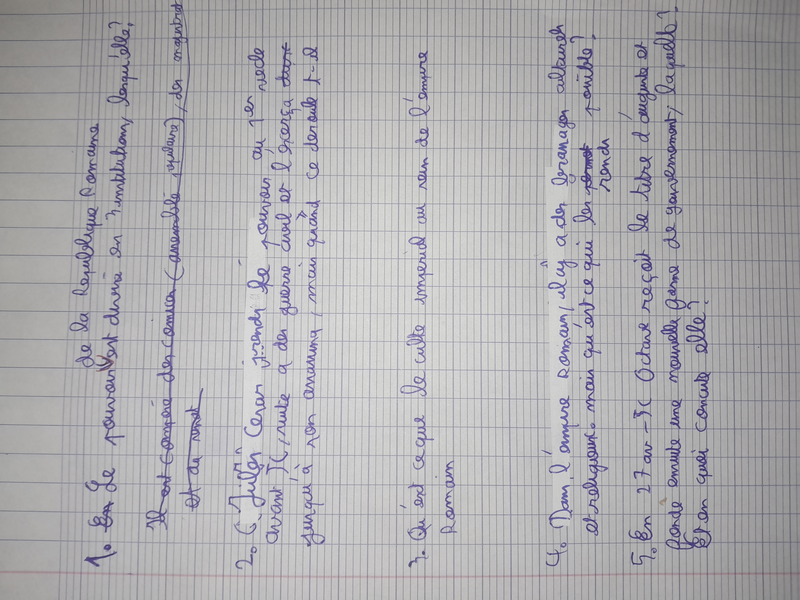 de la République Romaine
1. En Le pouvoir est divisé en 3 institutions, lesquelle?
Il est compose des comices (assemblée populaire), des magistrat
et du senat
2. Jules Cesar prends le pouvoir au 1er siecle
avant JC, suite a des guerre civil et l'exerça
jusqu'à son assassinat, mais quand ce deroule t-il
3. Qu'est ce que le culte imperial au sein de l'empire
Romain
4. Dans l'empire Romain, il y a des brassages culturels
et religieux. mais qu'est ce qui les permet possible?
rends
5. En 27 av-JC Octave reçoit le titre d'auguste et
fonde ensuite une nouvelle forme de gouvernement, laquelle?
Et en quoi consiste elle?